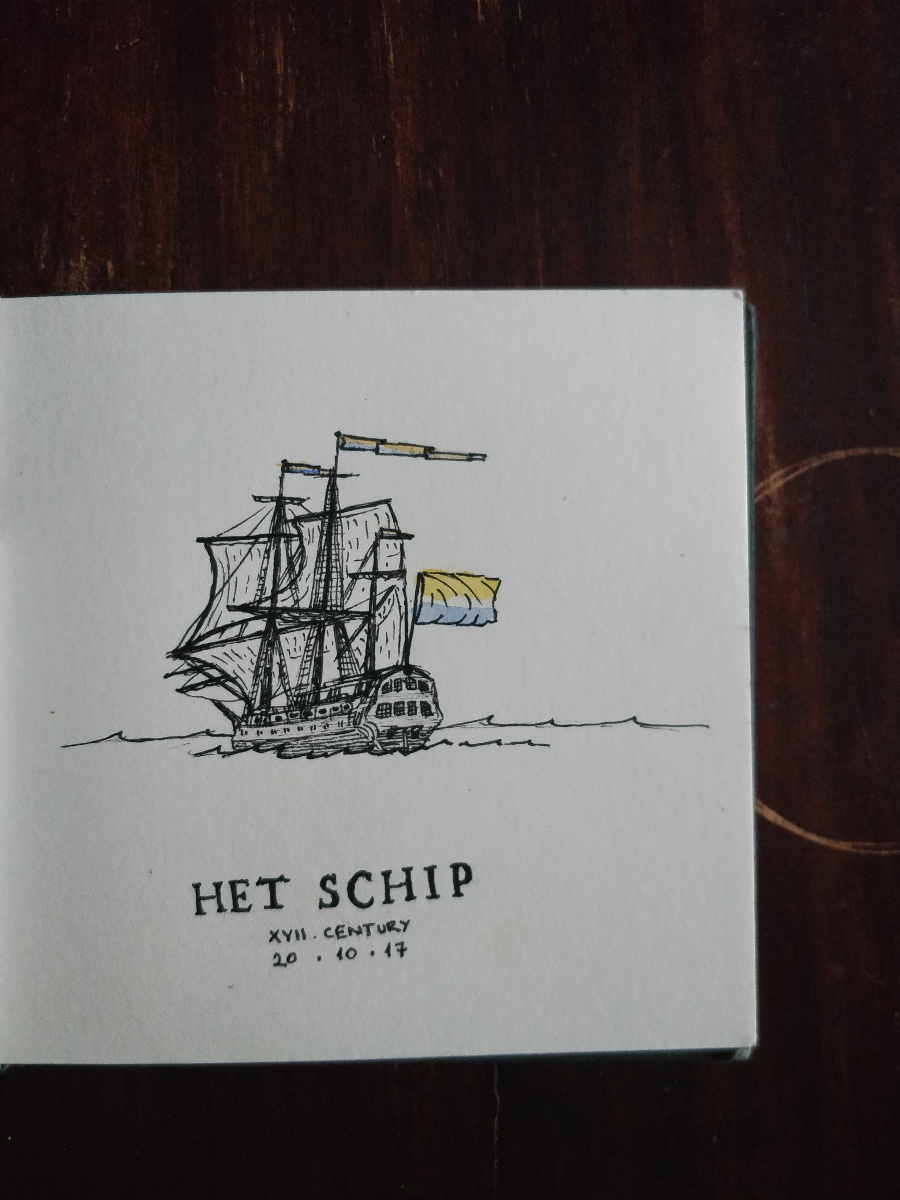 HET SCHIP
XVII. CENTURY
20 . 10 . 17